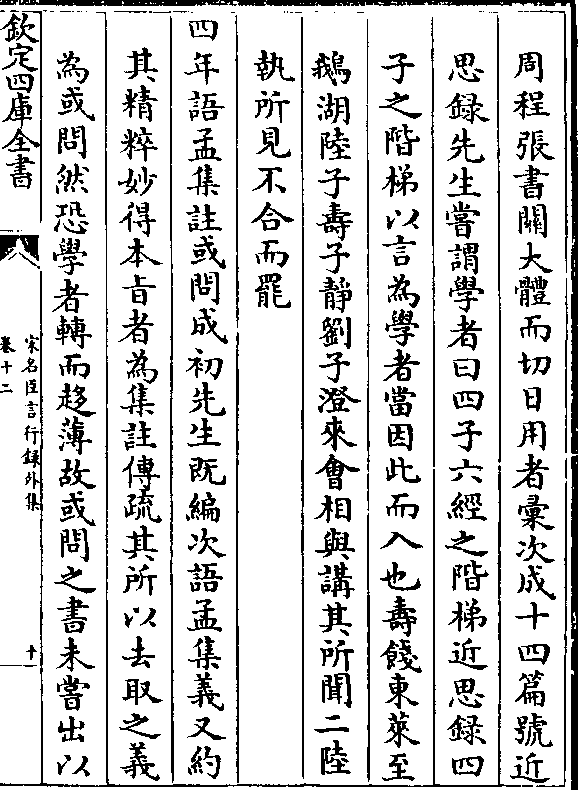 周程張書關大體而切日用者彙次成十四篇號近
思録先生嘗謂學者曰四子六經之階梯近思録四
子之階梯以言為學者當因此而入也壽餞東萊至
鵝湖陸子壽子靜劉子澄來會相與講其所聞二陸
執所見不合而罷
四年語孟集註或問成初先生既編次語孟集義又約
其精粹妙得本旨者為集註傳疏其所以去取之義
為或問然恐學者轉而趍薄故或問之書未嘗出以
欽定四庫全書
宋名臣言行録外集
卷十二
十